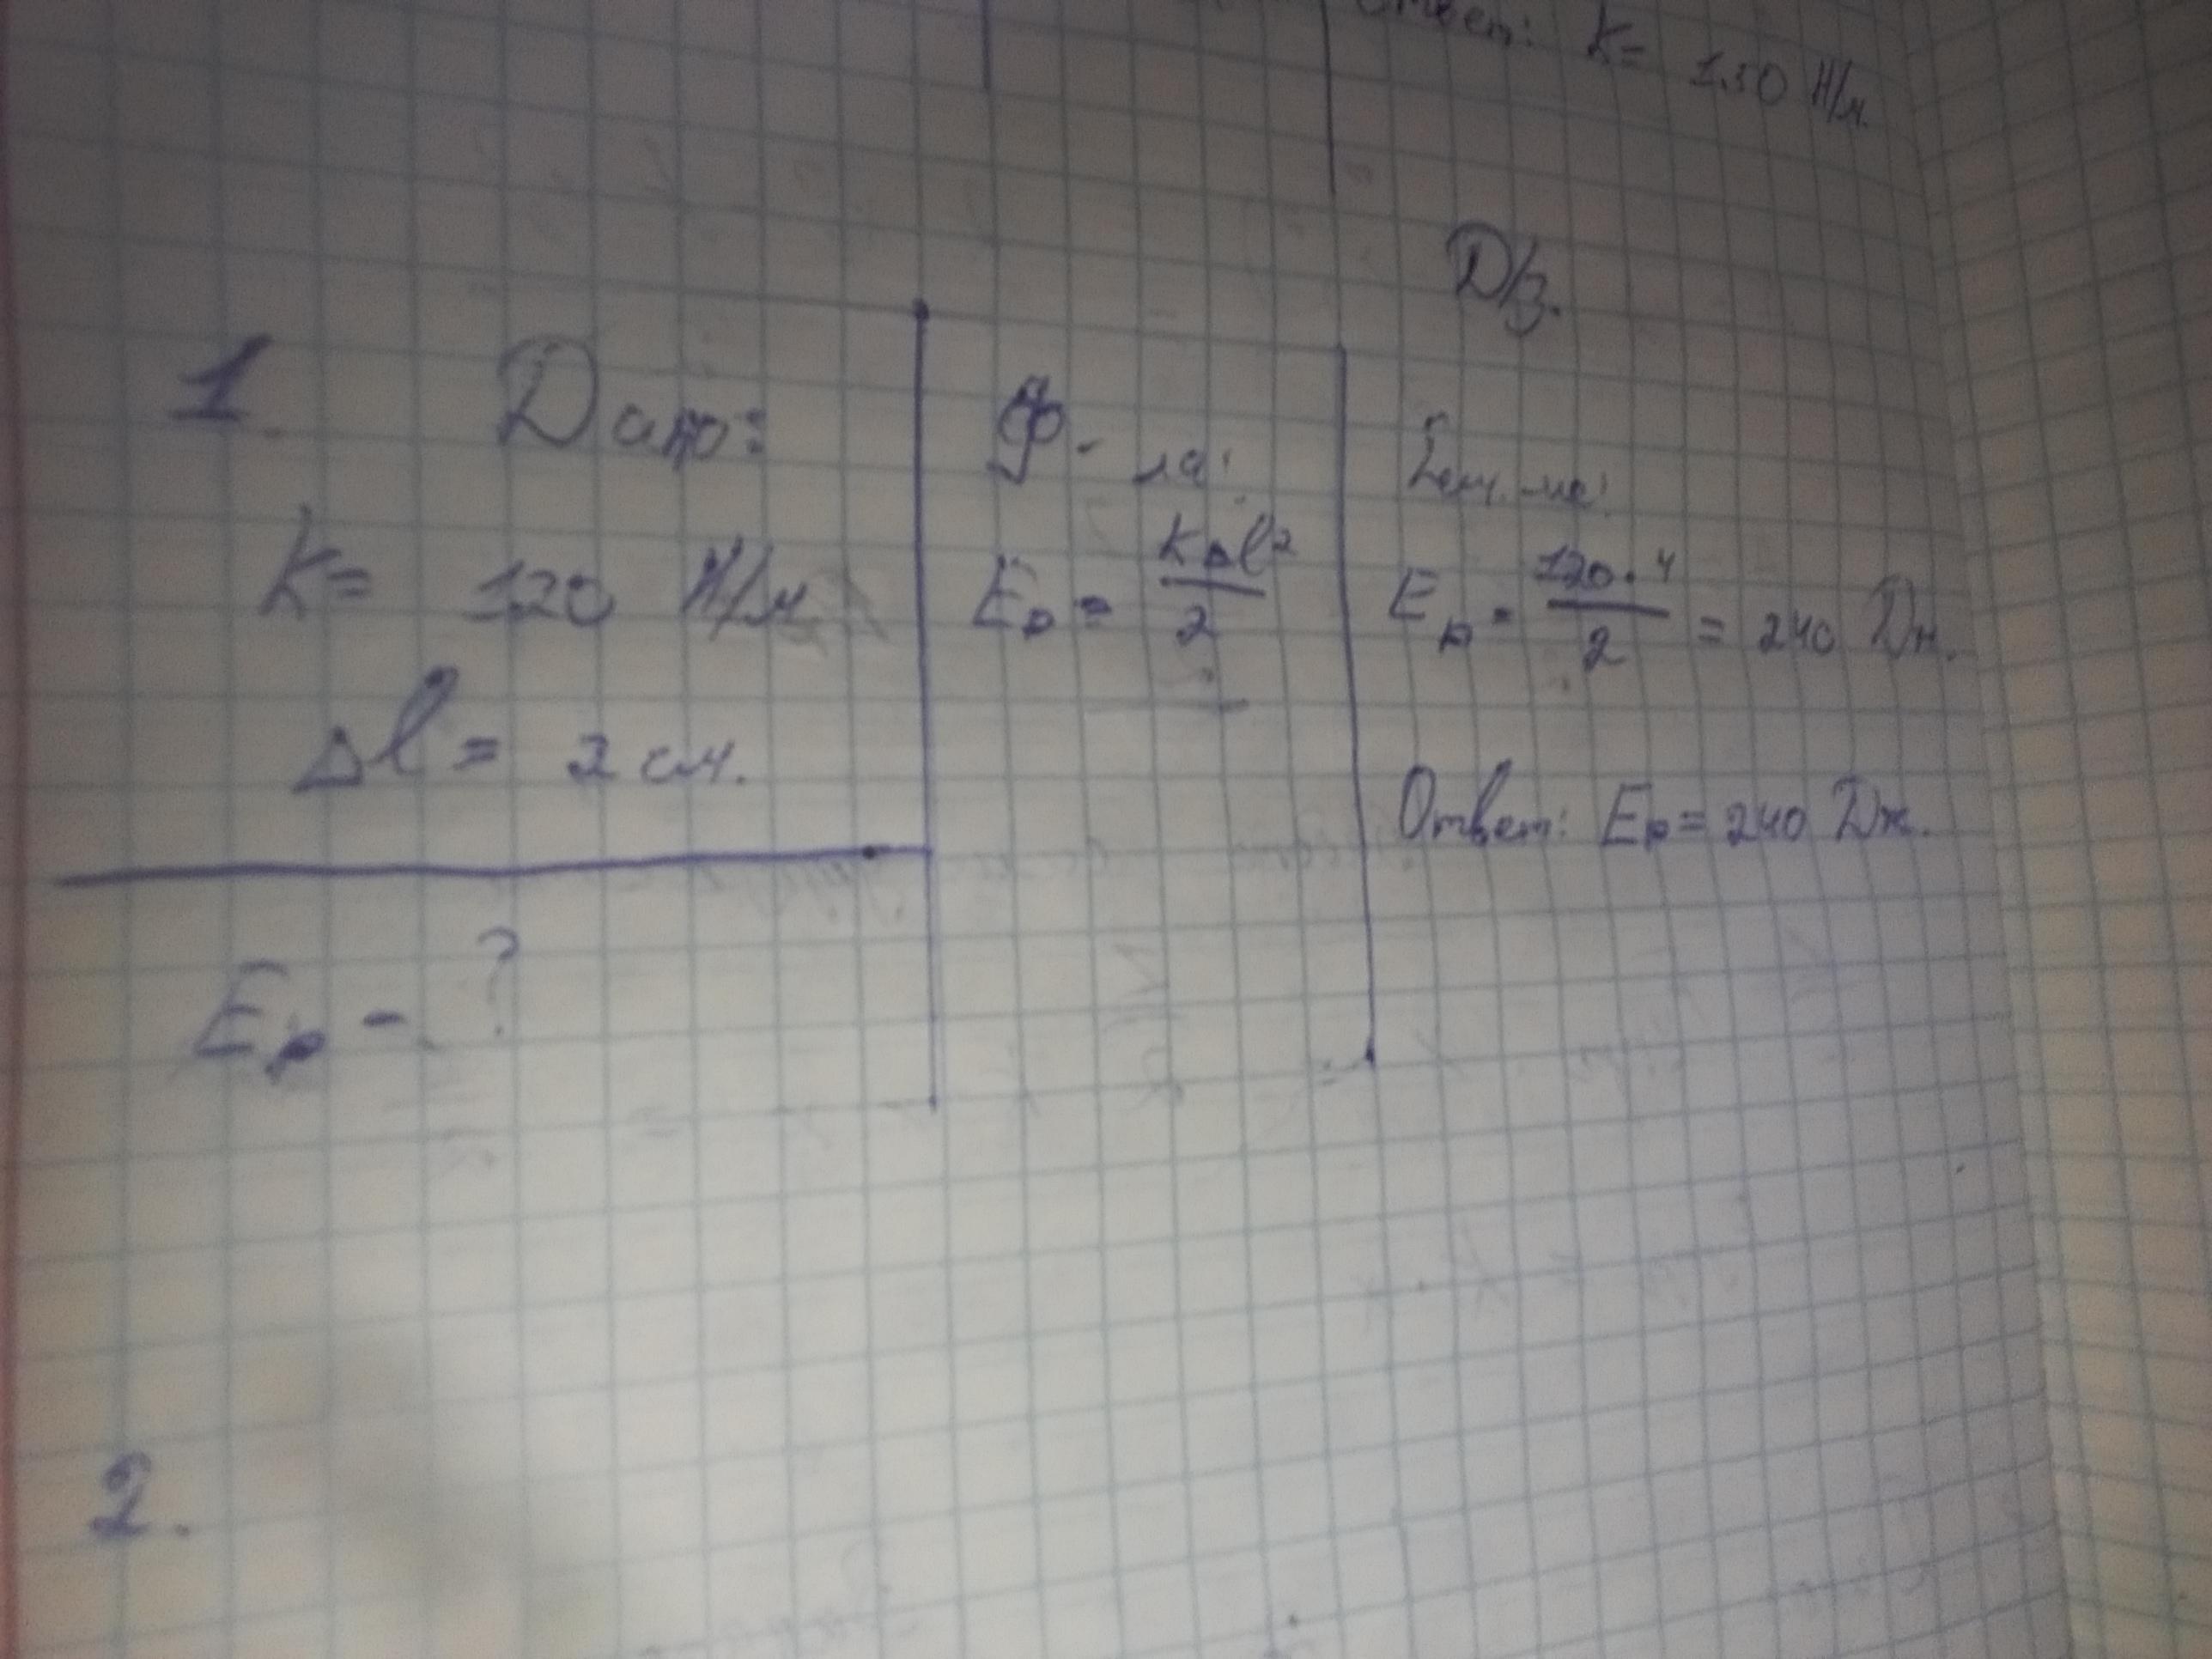 Ответ: k= 130 Н/м.
Д/з.
1. Дано:
k= 120 Н/м
Δl = 2 см.
Ep - ?
Ф-ла:
Ep = kΔl²/2
Ep = 120·4/2 = 240 Дж.
Ответ: Ep = 240 Дж.
2.